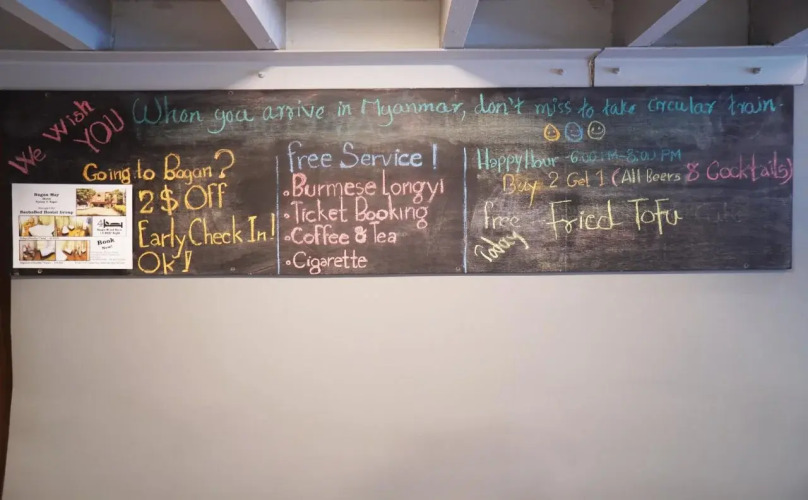 We Wish
YOU
When you arrive in Myanmar, don't miss to take circular train.
Going to Bagan?
2$ Off
Early Check In!
Ok!
Book
free Service!
• Burmese Longyi
• Ticket Booking
• Coffee & Tea
• Cigarette
Happy Hour 6:00 PM-8:00 PM
Buy 2 Get 1 (All Beers & Cocktails)
free Fried Tofu
Today